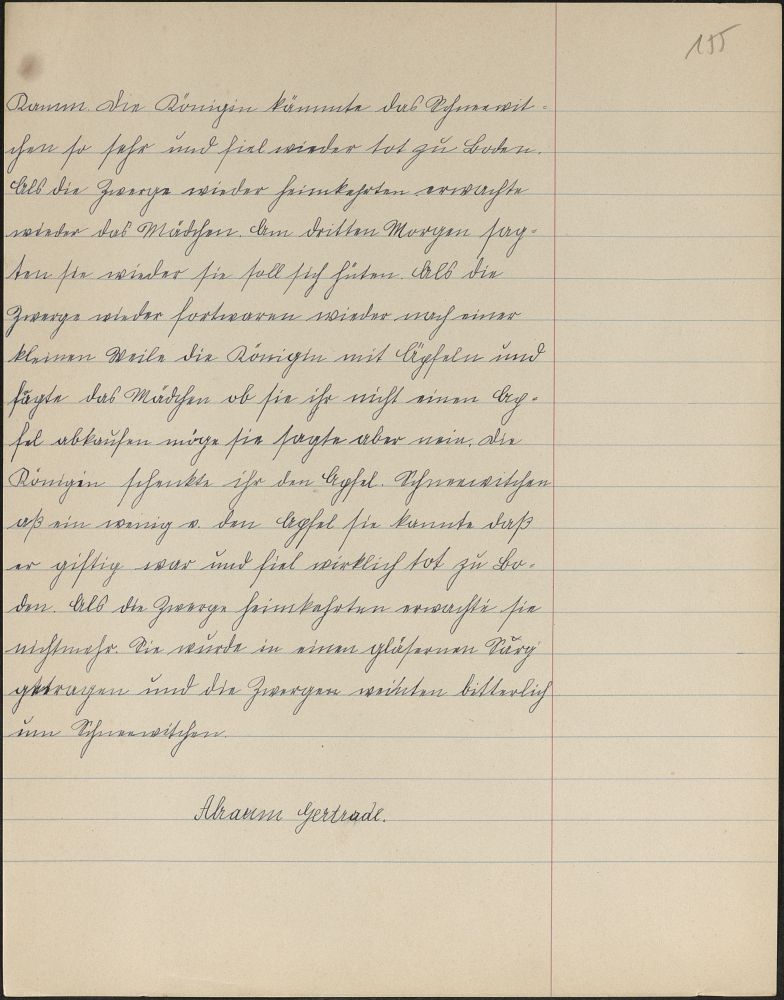 155
Kamm. Die Königin kämmte das Schneewit-
chen so sehr und fiel wieder tot zu Boden.
Als die Zwerge wieder heimkehrten erwachte
wieder das Mädchen. Am dritten Morgen sag-
ten sie wieder sie soll sich hüten. Als die
Zwerge wieder fortwaren wieder nach einer
kleinen Weile die Königin mit Äpfeln und
fragte das Mädchen ob sie ihr nicht einen Ap-
fel abkaufen möge sie sagte aber nein. Die
Königin schenkte ihr den Apfel. Schneewitchen
aß ein wenig v. den Apfel sie kannte daß
er giftig war und fiel wirklich tot zu Bo-
den. Als die Zwerge heimkehrten erwachte sie
nichtmehr. Sie wurde in einen gläsernen Sarg
getragen und die Zwergen weinten bitterlich
um Schneewitchen.
Gertrade.